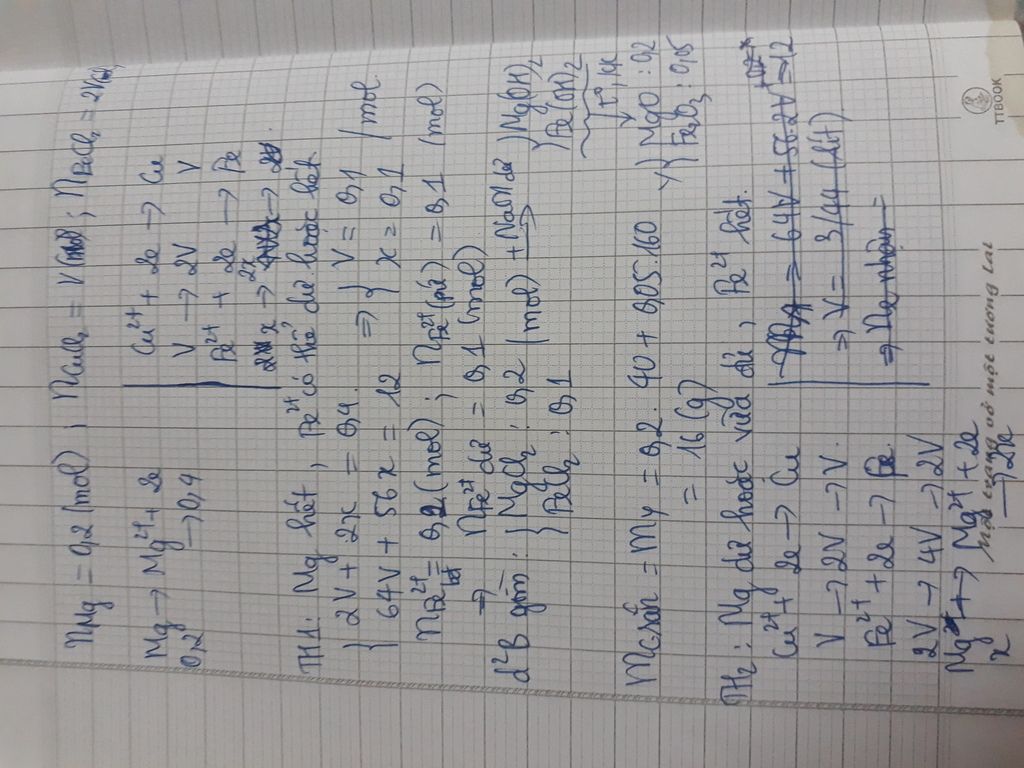 nMg = 0,2 (mol) ; nCuCl₂ = V (mol) ; nFeCl₂ = 2V (mol)
Mg → Mg²⁺ + 2e
0,2 → 0,4
Cu²⁺ + 2e → Cu
V → 2V V
Fe²⁺ + 2e → Fe
x → 2x
TH1: Mg hết, Fe²⁺ có thể dư hoặc hết
2V + 2x = 0,4
64V + 56x = 12
⇒ V = 0,1 (mol
x = 0,1
nFe²⁺ = 0,2 (mol) ; nFe²⁺ (pứ) = 0,1 (mol)
⇒ nFe²⁺ dư = 0,1 (mol)
d² B gồm: MgCl₂ : 0,2 (mol) + NaOH dư → Mg(OH)₂
FeCl₂ : 0,1 Fe(OH)₂
↓ t°, kk
Y MgO : 0,2
Fe₂O₃ : 0,05
m chắn = mY = 0,2 . 40 + 0,05.160
= 16 (g)
TH₂ : Mg dư hoặc vừa đủ, Fe²⁺ hết.
Cu²⁺ + 2e → Cu
V → 2V → V
Fe²⁺ + 2e → Fe
2V → 4V → 2V
Mg → Mg²⁺ + 2e
x → 2x
64V + 56.2V = 12
⇒ V = 3/44 (lít)
⇒
TTBOOK
Một trang vở một tương lai